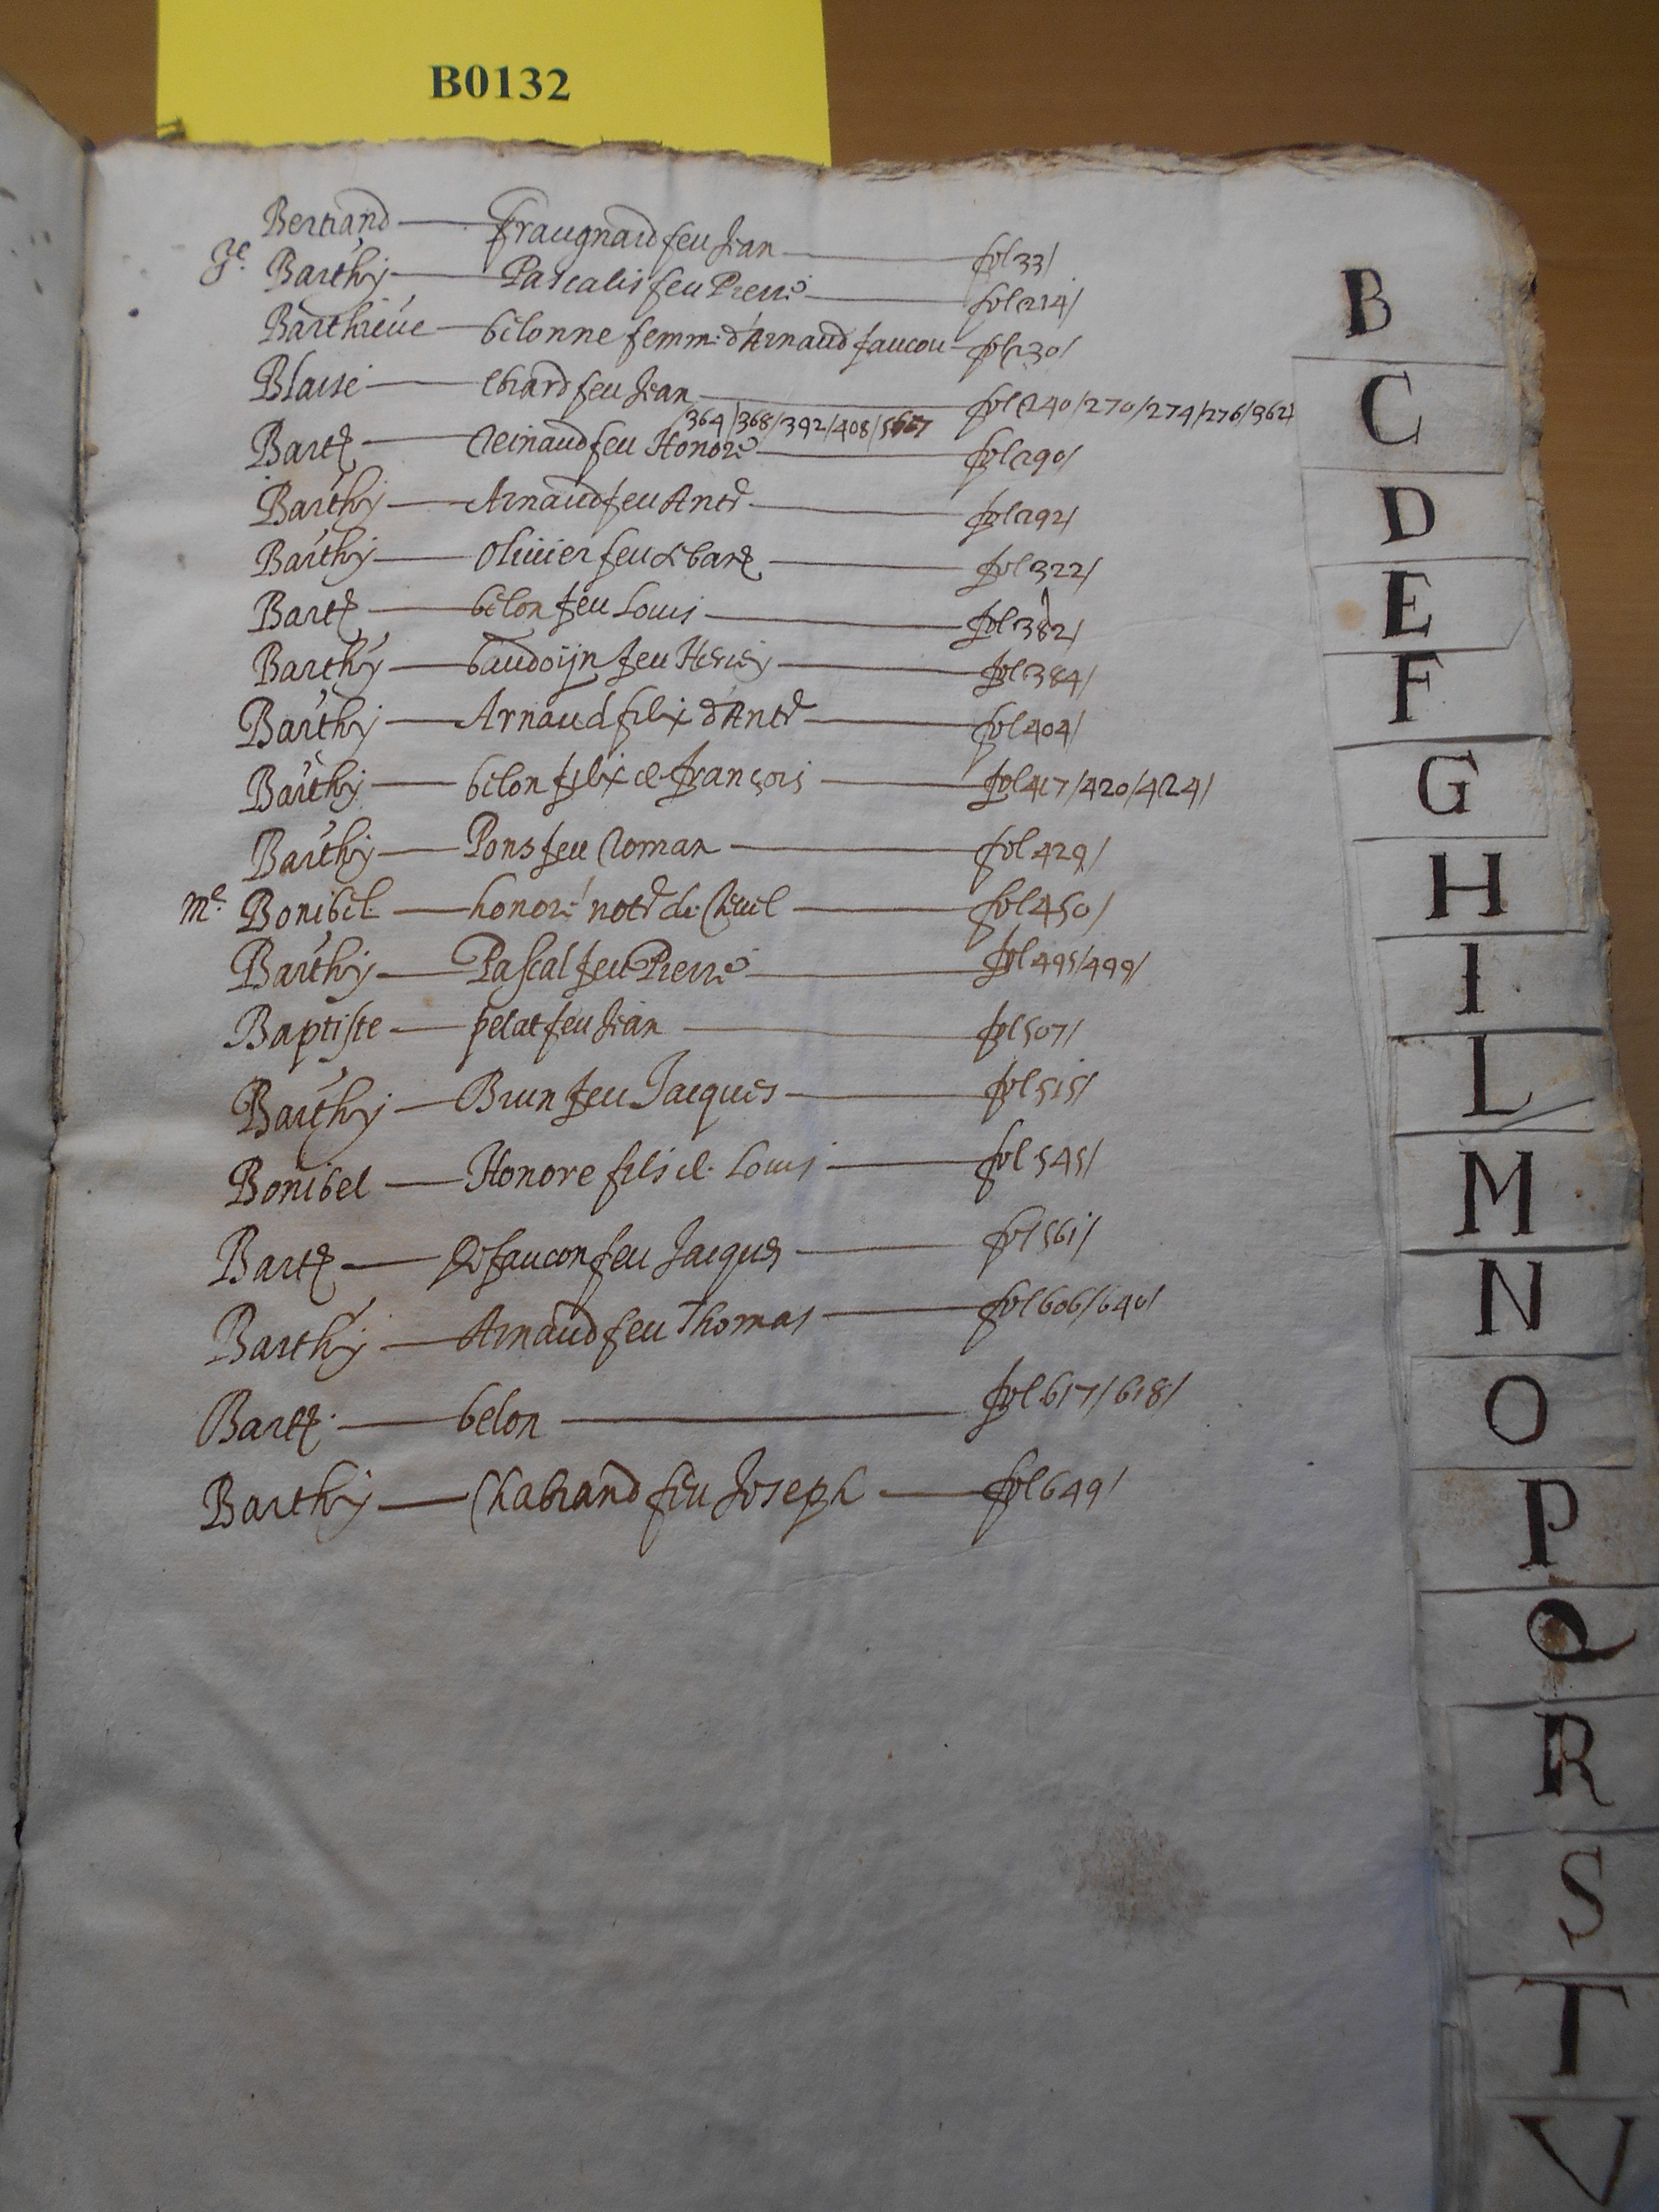 B0132
Bertrand — fraugnard feu Jean — fol 33/
Barthy — Pascalis feu Pierre — fol 214/
belonne femme d'Arnaud faucou — fol 230/
Blaise — ebrard feu Jean — fol 240/270/274/276/362/
364/368/392/408/
Bart — Reinaud feu Honoré — fol 290/
Barthy — Arnaud feu Ant — fol 292/
Barthy — Olivier feu — fol 322/
Bart — belon feu Louis — fol 382/
Barthy — baudoijn feu — fol 384/
Barthy — Arnaud filx d'Ant — fol 404/
Barthy — belon filx de françois — fol 417/420/424/
Barthy — Pons feu Roman — fol 429/
Me Bonibel — honoré not de — fol 450/
Barthy — Pascal feu Pierre — fol 495/499/
Baptiste — pelat feu Jean — fol 507/
Barthy — Brun feu Jacques — fol 515/
Bonibel — Honore fils de Louis — fol 545/
Bart — faucon feu Jacques — fol 561/
Barthy — Arnaud feu Thomas — fol 606/640/
Bart — belon — fol 617/618/
Barthy — Chabrand feu Joseph — fol 649/
B
C
D
E
F
G
H
I
L
M
N
O
P
Q
R
S
T
V